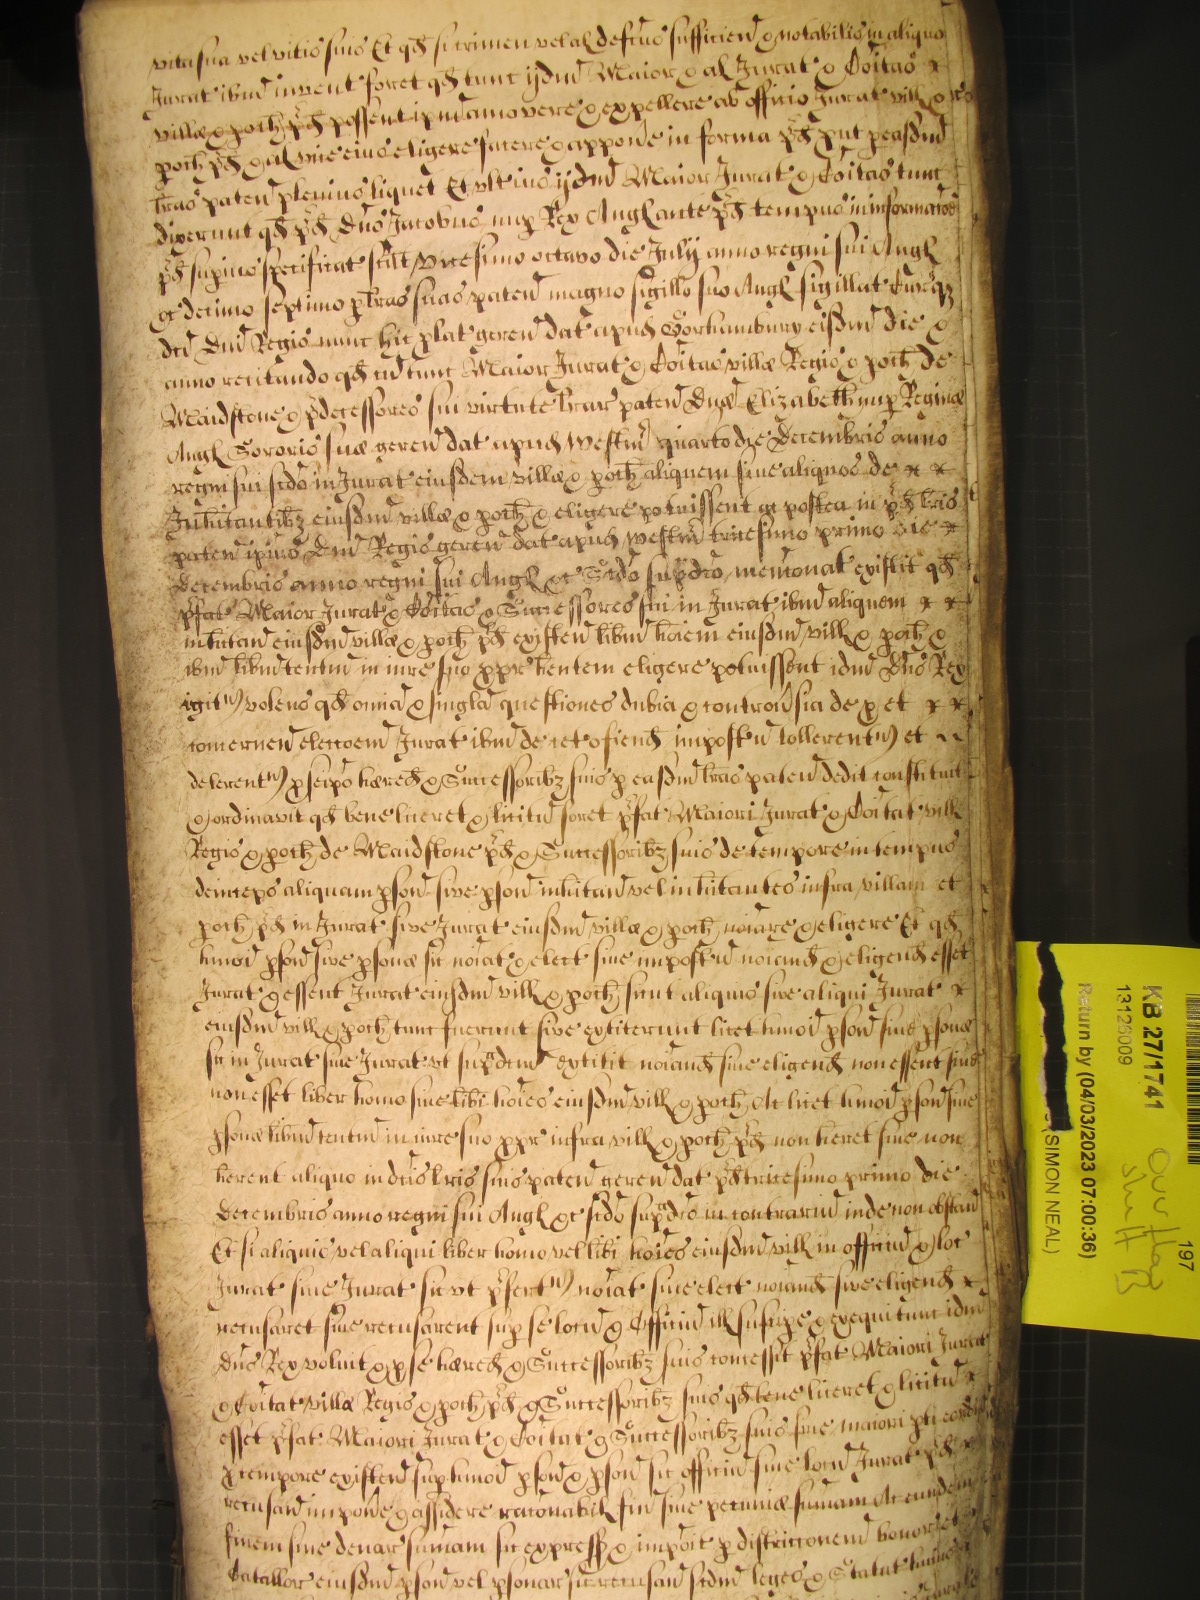 vita sua vel vitio suis Et qd si crimen vel al defcus sufficien & notabilis in aliquo
Jurat ibm invent foret qd tunc ijdm Maior & al Jurat & Coitas
villæ & poch pd possent ipm amovere & expellere ab officio Jurat vill &
poch pd & al vice eius eligere ficere & appone in forma pd put p easdm
lras paten plenius liquet Et ultius ijdm Maior Jurat & Coitas tunc
dixerunt qd pd Dns Jacobus nup Rex Angl ante pd tempus in informacoe
pd supius specificat scilt vicesimo octavo die Julij anno regni sui Angl
&c decimo septimo p lras suas paten magno sigillo suo Angl sigillat Curieq
dci Dni Regis nunc hic plat geren dat apud Gorhambury eisdm die &
anno recitando qd cu tunc Maior Jurat & Coitas villæ Regis & poch de
Maidstone & pdecessores sui virtute lrar paten Dnæ Elizabeth nup Reginæ
Angl Sororis suæ geren dat apud Westm quarto die Decembris anno
regni sui scdo in Jurat eiusdem villæ & poch aliquem sive aliquos de
Inhitantibz eiusdm villæ & poch & eligere potuissent ac postea in pd lris
paten ipius Dni Regis geren dat apud Westm tricesimo primo die
Decembris anno regni sui Angl &c Scdo supdco mencionat existit qd
pfat Maior Jurat & Coitas & Successores sui in Jurat ibm aliquem
inhitan eiusdm villæ & poch pd existen libm hoiem eiusdm vill & poch &
ibm libm tentm in iure suo ppr hentem eligere potuissent idm Dns Rex
igitr volens qd omia & singla questiones dubia & controvsia de p et
concernen eleccoem Jurat ibm de cetofiend imposteru tollerentr et
delerentr p seipo hæred & Successoribz suis p easdm lras paten dedit constituit
& ordinavit qd bene liceret & licitu foret pfat Maiori Jurat & Coitat vill
Regis & poch de Maidstone pd & Successoribz suis de tempore in tempus
deinceps aliquam pson sive pson inhitan vel inhitantes infra villam et
poch pd in Jurat sive Jurat eiusdm villæ & poch noiare & eligere Et qd
hmoi pson sive psonæ sic noiat & elect sive imposteru noiand & eligend esset
Jurat & essent Jurat eiusdm vill & poch sicut aliquis sive aliqui Jurat
eiusdm vill & poch tunc fuerunt sive extiterunt licet hmoi pson sive psonæ
sic in Jurat sive Jurat ut supdcm extitit noiand sive eligend non essent sive
non esset liber homo sive libi hoies eiusdm vill & poch Ac licet hmoi pson sive
psonæ libm tentm in iure suo ppr infra vill & poch pd non heret sive non
herent aliquo in dcis lris suis paten geren dat pd tricesimo primo die
Decembris anno regni sui Angl &c scdo supdco in contrariu inde non obstan
Et si aliquis vel aliqui liber homo vel libi hoies eiusdm vill in officiu & loc
Jurat sive Jurat sic ut pfertr noiat sive elect noiand sive eligend
recusaret sive recusarent sup se locu & Officiu ill suscipe & exequi tunc idm
Dns Rex voluit & p se hæred & Successoribz suis concessit pfat Maiori Jurat
& Coitat villæ Regis & poch pd & Successoribz suis qd bene liceret & licitu
esset pfat Maiori Jurat & Coitat & Successoribz suis sive maiori pti eordem
p tempore existen sup hmoi pson & pson sic officiu sive locu Jurat pd
recusan impone & assidere racionabil fin sive pecuniæ sumam Ac eundem
finem sive denar sumam sic express & imposit p districcionem bonor et
Catallor eiusdm pson vel psonar sic recusan scdm leges & Statut
KB 27/1741
13129009
Return by (04/03/2023 07:00:36)
(SIMON NEAL)
197
Over